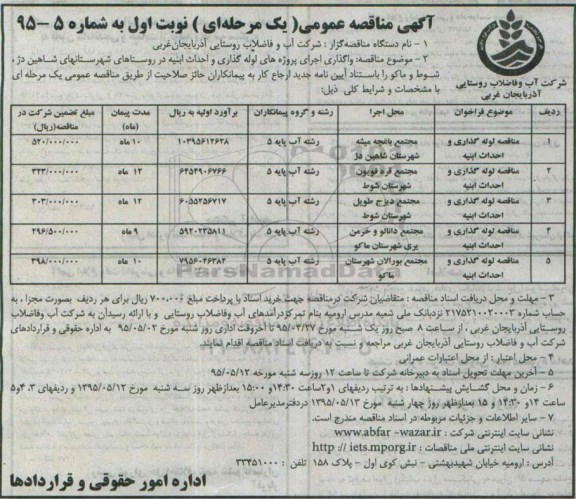 آگهی مناقصه عمومی( یک مرحله‌ای ) نوبت اول به شماره ۵ -۹۵
شرکت آب وفاضلاب روستایی
آذربایجان غربی
۱ - نام دستگاه مناقصه‌گزار : شرکت آب و فاضلاب روستایی آذربایجان‌غربی
۲ - موضوع مناقصه: واگذاری اجرای پروژه های لوله گذاری و احداث ابنیه در روستاهای شهرستانهای شاهین دژ،
شوط و ماکو را باستناد آیین نامه جدید ارجاع کار به پیمانکاران حائز صلاحیت از طریق مناقصه عمومی یک مرحله ای
با مشخصات و شرایط کلی ذیل:
ردیف موضوع فراخوان محل اجرا رشته و گروه پیمانکاران برآورد اولیه به ریال مدت پیمان (ماه) مبلغ تضمین شرکت در مناقصه(ریال)
۱ مناقصه لوله گذاری و احداث ابنیه مجتمع باغچه میشه شهرستان شاهین دژ رشته آب پایه ۵ ۱۰۳۹۵۶۱۲۶۳۸ ۱۰ ماه ۵۲۰/۰۰۰/۰۰۰
۲ مناقصه لوله گذاری و احداث ابنیه مجتمع قره قویون شهرستان شوط رشته آب پایه ۵ ۶۴۵۴۹۰۶۷۶۶ ۱۲ ماه ۳۲۳/۰۰۰/۰۰۰
۳ مناقصه لوله گذاری و احداث ابنیه مجتمع دیزج طویل شهرستان شوط رشته آب پایه ۵ ۶۰۵۵۲۵۶۷۱۷ ۱۲ ماه ۳۰۳/۰۰۰/۰۰۰
۴ مناقصه لوله گذاری و احداث ابنیه مجتمع دانالو و خرمن یری شهرستان ماکو رشته آب پایه ۵ ۵۹۲۰۲۳۵۸۱۱ ۹ ماه ۲۹۶/۵۰۰/۰۰۰
۵ مناقصه لوله گذاری و احداث ابنیه مجتمع بورالان شهرستان ماکو رشته آب پایه ۵ ۷۹۵۶۰۴۶۳۸۲ ۱۰ ماه ۳۹۸/۰۰۰/۰۰۰
۳ - مهلت و محل دریافت اسناد مناقصه : متقاضیان شرکت درمناقصه جهت خرید اسناد با پرداخت مبلغ ۷۰۰.۰۰۶ ریال برای هر ردیف بصورت مجزا، به
حساب شماره ۲۱۷۵۲۱۰۰۲۰۰۰۳ نزدبانک ملی شعبه مدرس ارومیه بنام تمرکزدرآمدهای آب وفاضلاب روستایی و با ارائه رسیدآن به شرکت آب وفاضلاب
روستایی آذربایجان غربی ، از ساعت ۸ صبح روز یک شنبه مورخ ۹۵/۰۴/۲۷ تا آخروقت اداری روز شنبه مورخ ۹۵/۰۵/۰۲ به اداره حقوقی و قراردادهای
شرکت آب و فاضلاب روستایی آذربایجان غربی مراجعه و نسبت به دریافت اسناد مناقصه اقدام نمایند.
۴ - محل اعتبار : از محل اعتبارات عمرانی
۵ - آخرین مهلت تحویل اسناد به دبیرخانه شرکت تا ساعت ۱۲ روزسه شنبه مورخه ۹۵/۰۵/۱۲
۶ - زمان و محل گشایش پیشنهادها : به ترتیب ردیفهای ۱و۲ساعت ۱۴:۳۰و ۱۵:۰۰ بعدازظهر روز سه شنبه مورخ ۱۳۹۵/۰۵/۱۲ و ردیفهای ۳، ۴و۵
ساعت ۱۴و ۱۴:۳۰ و ۱۵ بعدازظهر روز چهار شنبه مورخ ۱۳۹۵/۰۵/۱۳ دردفترمدیرعامل
۷ - سایر اطلاعات و جزئیات مربوطه در اسناد مناقصه مندرج است.
نشانی سایت اینترنتی شرکت : www.abfar -wazar.ir
نشانی سایت اینترنتی ملی مناقصات : http :// iets.mporg.ir
آدرس : ارومیه خیابان شهیدبهشتی - نبش کوی اول - پلاک ۱۵۸ تلفن : ۳۳۴۵۱۰۰۰
اداره امور حقوقی و قراردادها
ParsNamadData